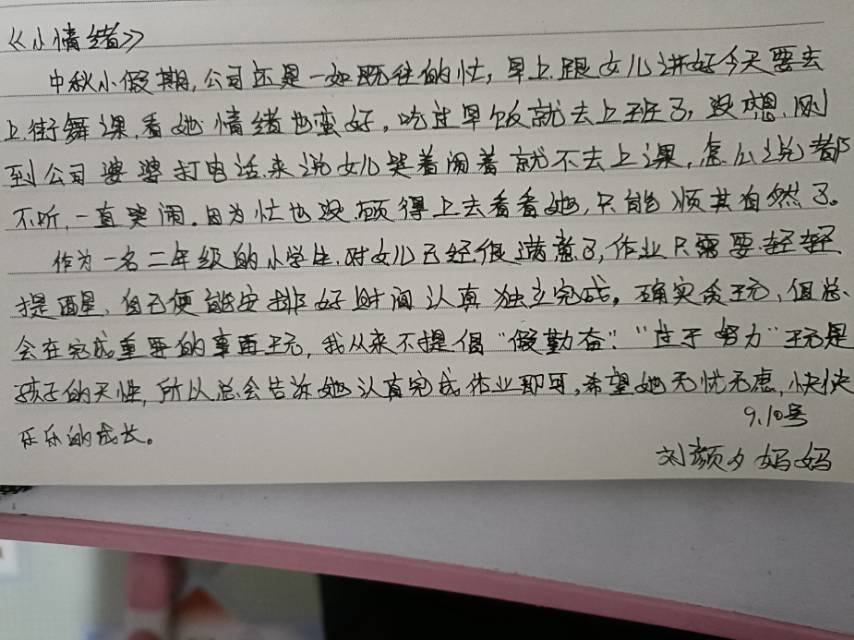 《小情绪》
中秋小假期,公司还是一如既往的忙,早上跟女儿讲好今天要去
上街舞课,看她情绪也蛮好,吃过早饭就去上班了,没想,刚
到公司婆婆打电话来说女儿哭着闹着就不去上课,怎么说都
不听,一直哭闹。因为忙也没顾得上去看看她,只能顺其自然了。
作为一名二年级的小学生,对女儿已经很满意了,作业只需要轻轻
提醒,自己便能安排好时间认真独立完成。确实贪玩,但总
会在完成重要的事再玩,我从来不提倡“假勤奋”“过于努力”玩是
孩子的天性,所以总会告诉她认真完成作业即可,希望她无忧无虑,快快
乐乐的成长。
9.10号
刘颜夕妈妈